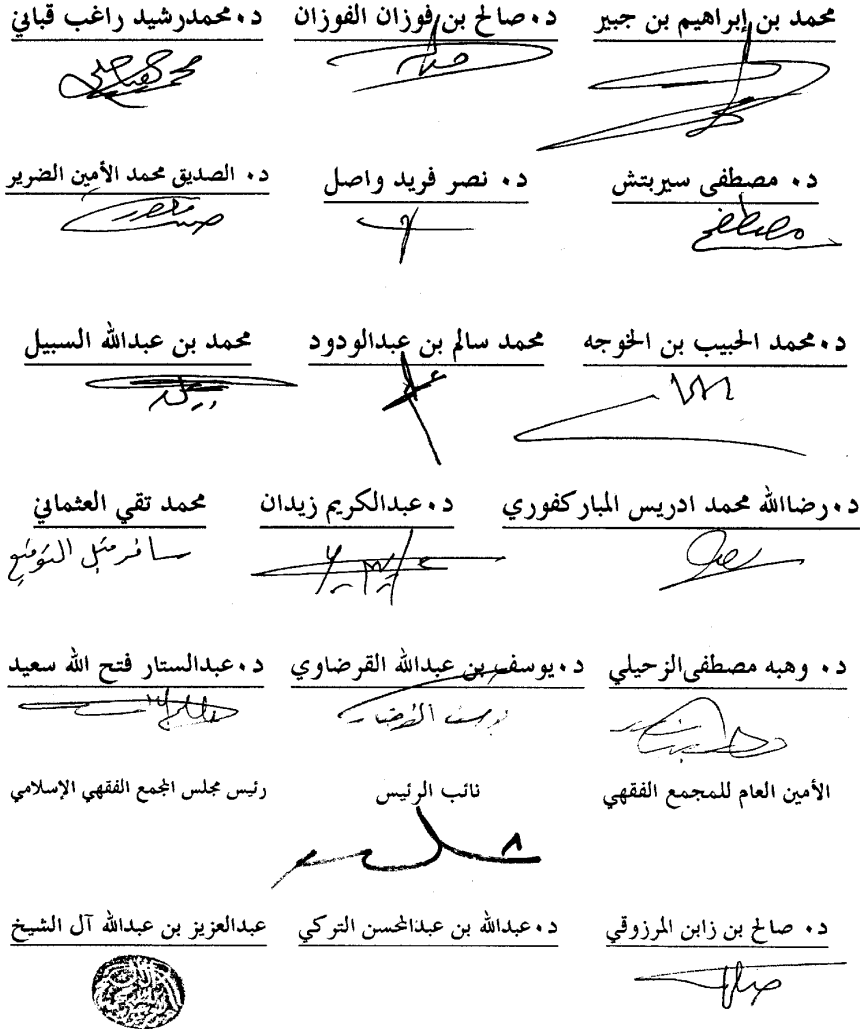 محمد بن إبراهيم بن جبير د. صالح بن فوزان الفوزان د. محمدرشيد راغب قباني
د. مصطفى سيربتش د. نصر فريد واصل د. الصديق محمد الأمين الضرير
د. محمد الحبيب بن الخوجه محمد سالم بن عبدالودود محمد بن عبدالله السبيل
د. رضاالله محمد ادريس المباركفوري د. عبدالكريم زيدان محمد تقي العثماني
سافر قبل التوقيع
د. وهبه مصطفى الزحيلي د. يوسف بن عبدالله القرضاوي د. عبدالستار فتح الله سعيد
الأمين العام للمجمع الفقهي نائب الرئيس رئيس مجلس المجمع الفقهي الإسلامي
د. صالح بن زابن المرزوقي د. عبدالله بن عبدالمحسن التركي عبدالعزيز بن عبدالله آل الشيخ